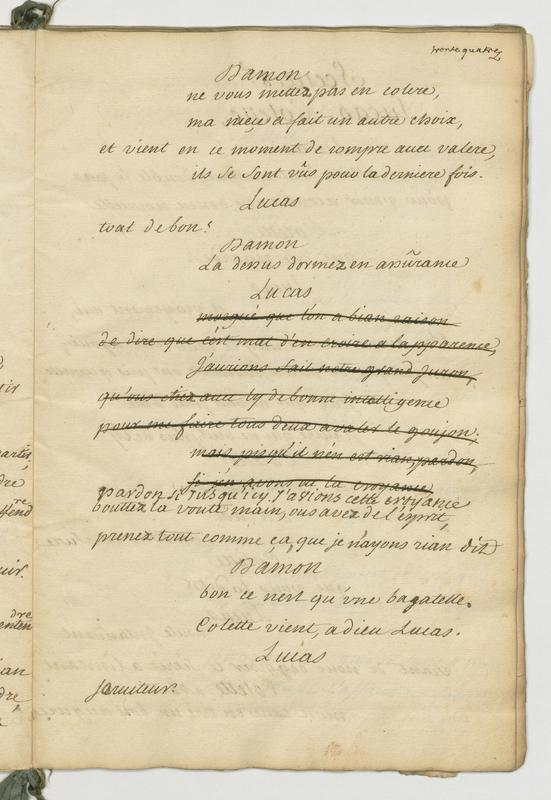 trente quatre
Damon
ne vous mettez pas en colere,
ma niéce a fait un autre choix,
et vient en ce moment de rompre avec valere,
ils se sont vûs pour la derniere fois.
Lucas
tout de bon?
Damon
La dessus dormez en assûrance
Lucas
morgué que l'on a bian raison
de dire que c'ést mal d'en croire a l'apparence,
J'aurions fait notre grand juron,
qu'ous étiez avec ly de bonne intelligence
pour me faire tous deux avaler le goujon;
mais pisqu'il n'én est rian, pardon,
Si j'en avons eu la croyance
pardon si jusqu'icy j'avions cette croyance
boutez la votre main, ous avez de l'ésprit,
prenez tout comme ça, que je n'ayons rian dit
Damon
bon ce n'est qu'une bagatelle.
Colette vient, adieu Lucas.
Lucas
Sarviteur.